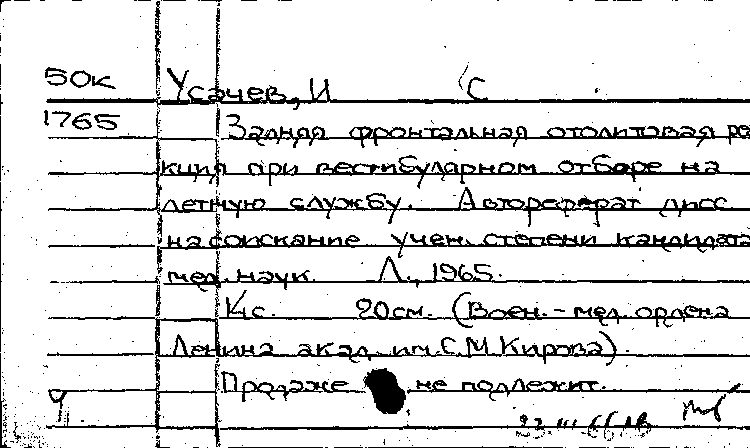 50к Усачев, И С
1765 Задняя фронтальная отолитовая ре
кция при вестибулярном отборе на
летную службу. Автореферат дисс.
на соискание учен. степени кандидата
мед. наук. Л., 1965.
14с. 20см. (Воен.-мед. ордена
Ленина акад. им. С.М. Кирова).
Продаже не подлежит.
23.III.66